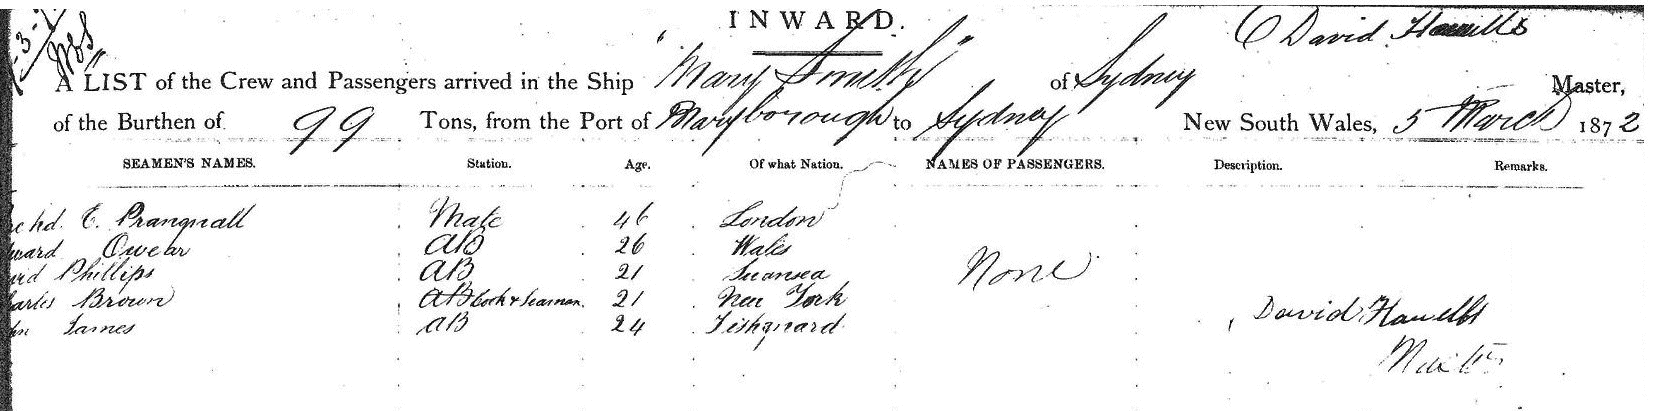 INWARD.
David Howells
A LIST of the Crew and Passengers arrived in the Ship "Mary Smith" of Sydney Master,
of the Burthen of 99 Tons, from the Port of Maryborough to Sydney New South Wales, 5 March 1872
SEAMEN'S NAMES. Station. Age. Of what Nation. NAMES OF PASSENGERS. Description. Remarks.
hd. E. Prangnall Mate 46 London
ward Owear AB 26 Wales
vid Phillips AB 21 Swansea None
harles Brown AB Cook & Seaman 21 New York David Howells
hn James AB 24 Fishguard
Master